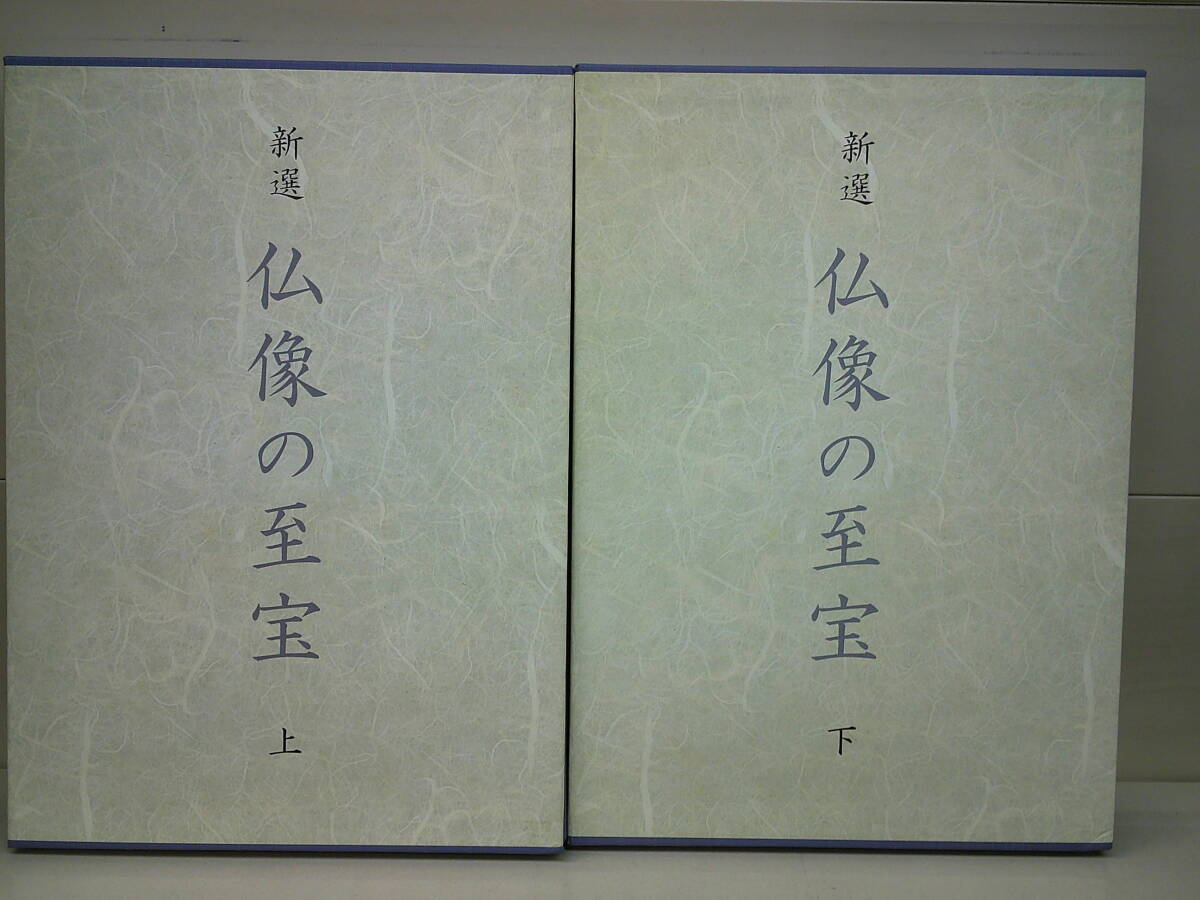 新選
仏像の至宝
上
新選
仏像の至宝
下